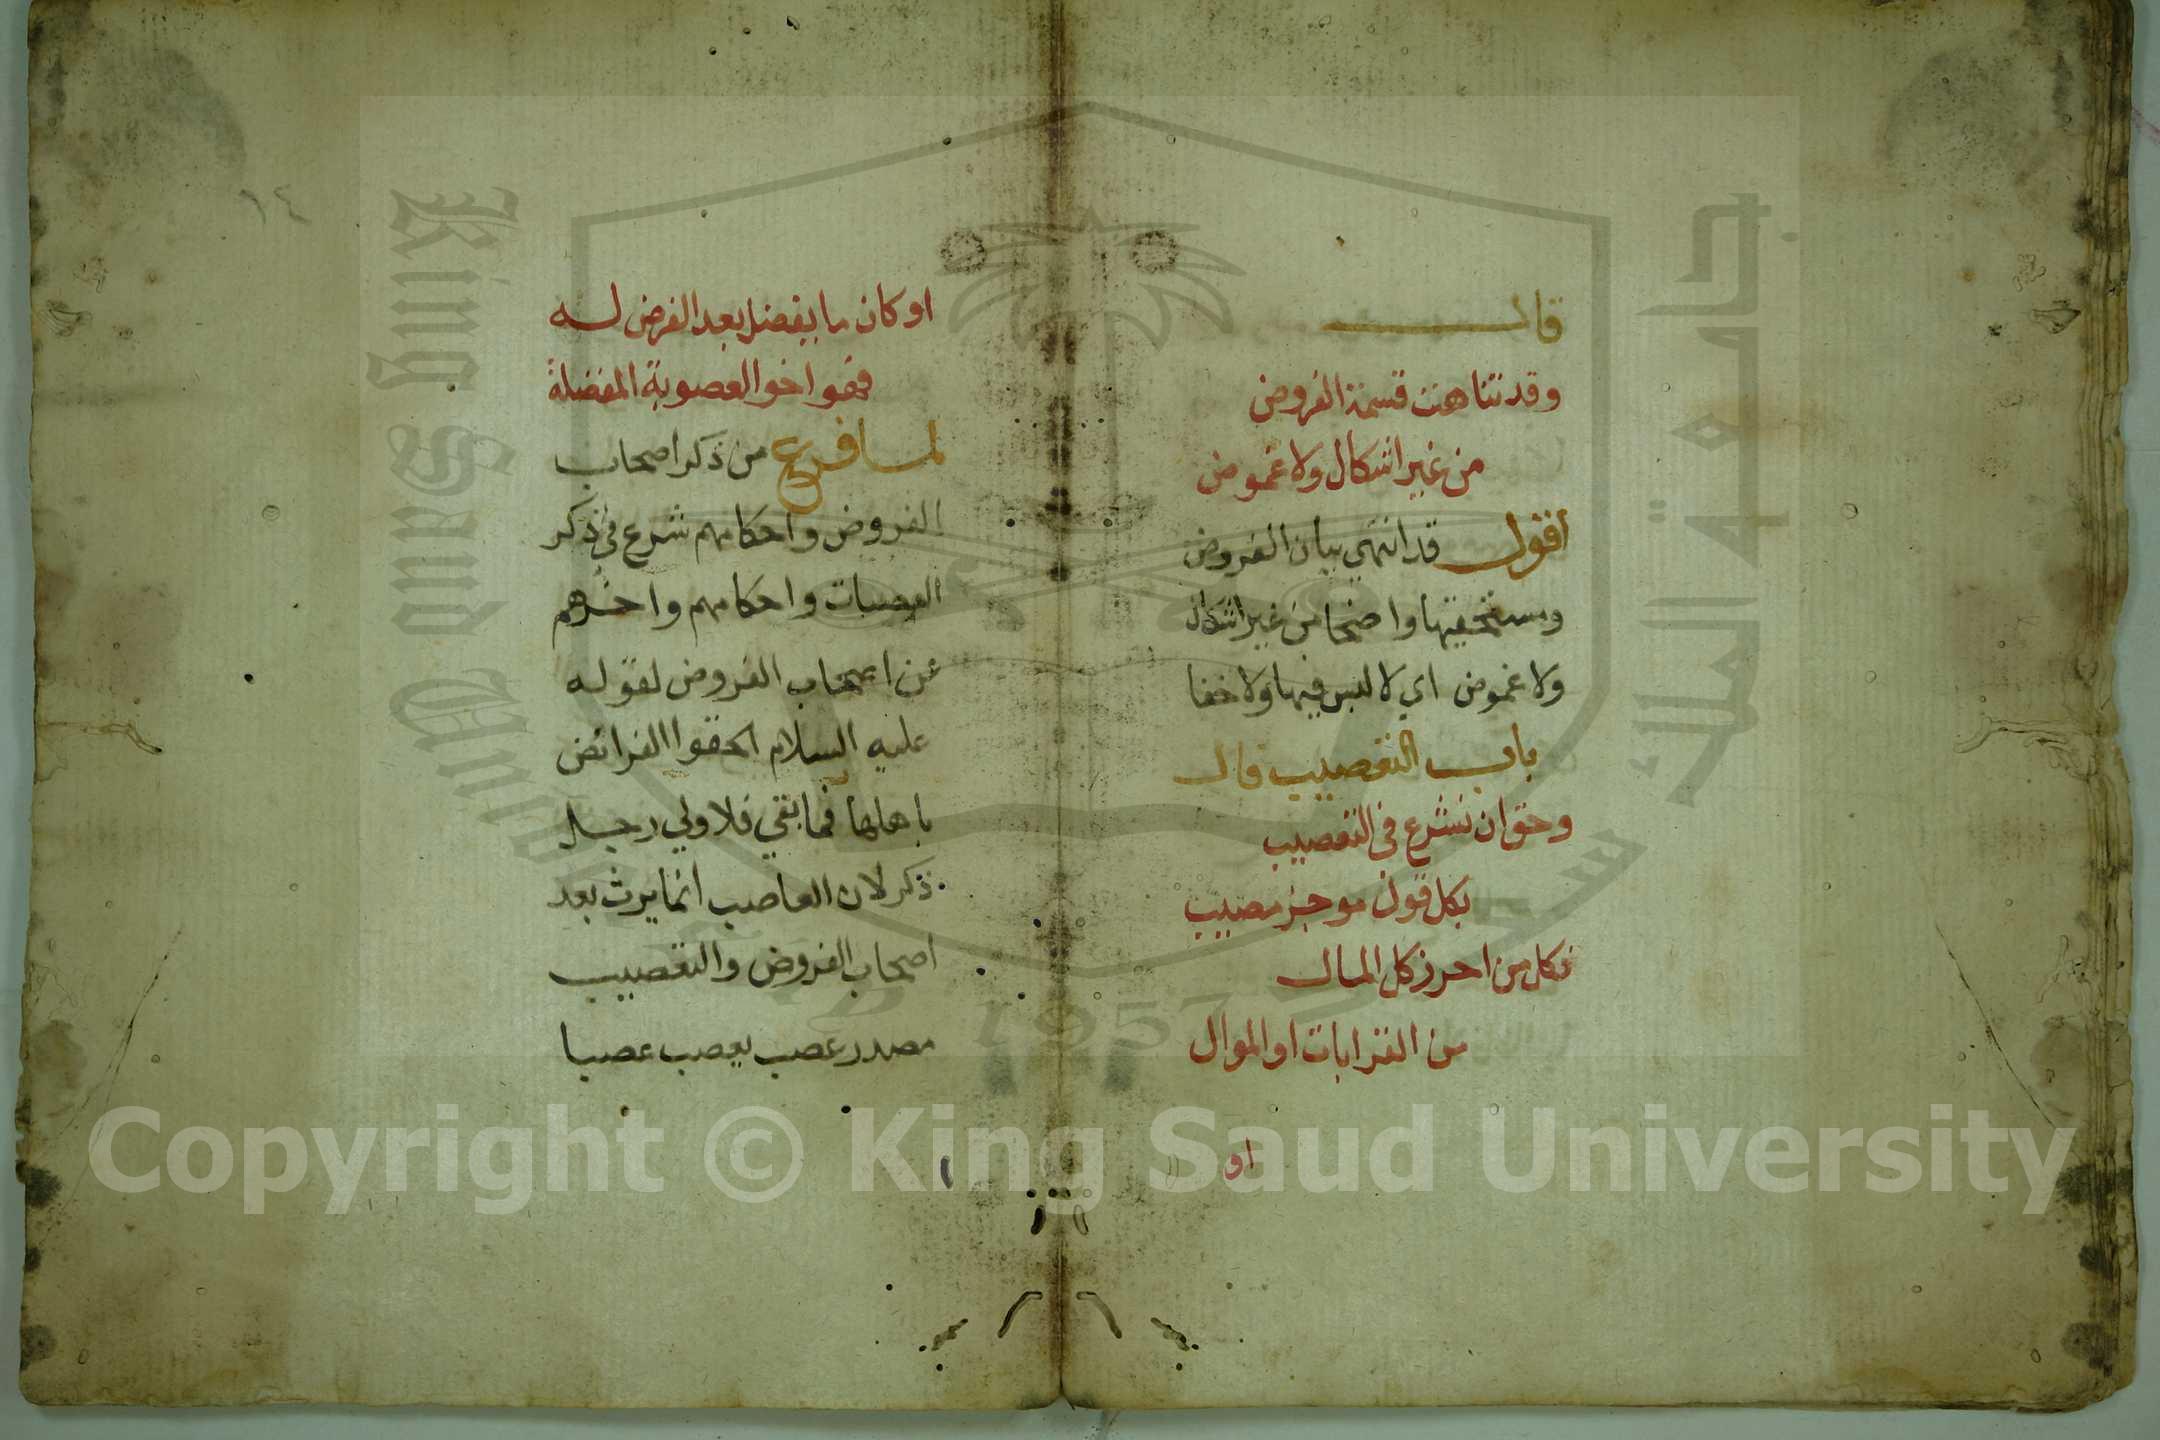 قال
وقد تناهت قسمة الفروض
من غير اشكال ولا غموض
أقول قد انتهي بيان الفروض
ومستحقيها واضحا من غير اشكال
ولا غموض اي لا لبس فيها ولا خفا
باب التعصيب قال
وحق ان نشرع في التعصيب
بكل قول موجز مصيب
فكل من احرز كل المال
من القرابات او الموال
او
١٤
او كان ما يفضل بعد الفرض له
فهو اخو العصوبة المفضلة
لما فرغ من ذكر اصحاب
الفروض واحكامهم شرع في ذكر
العصبات واحكامهم واخرهم
عن اصحاب الفروض لقوله
عليه السلام الحقوا الفرائض
باهلها فما بقي فلاولي رجل
ذكر لان العاصب انما يرث بعد
اصحاب الفروض والتعصيب
مصدر عصب يعصب عصبا
King Saud University
جامعة الملك سعود
1957
Copyright © King Saud University